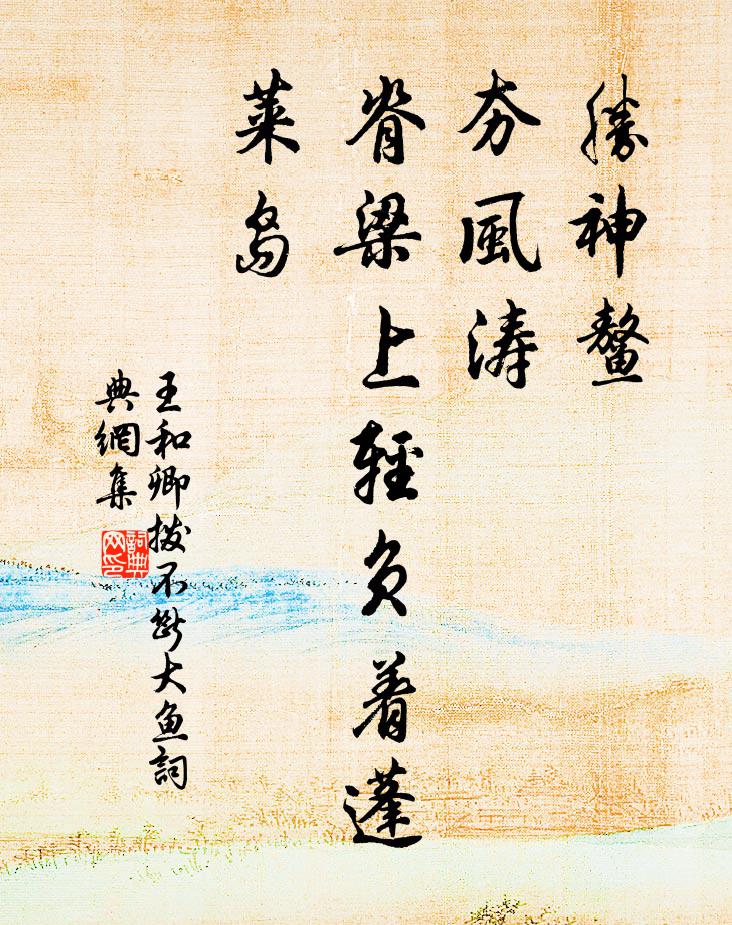 勝神鰲
夯風濤
脊梁上輕負着蓬
萊島
王和卿撥不斷大魚詞
典網集
詞典
网印